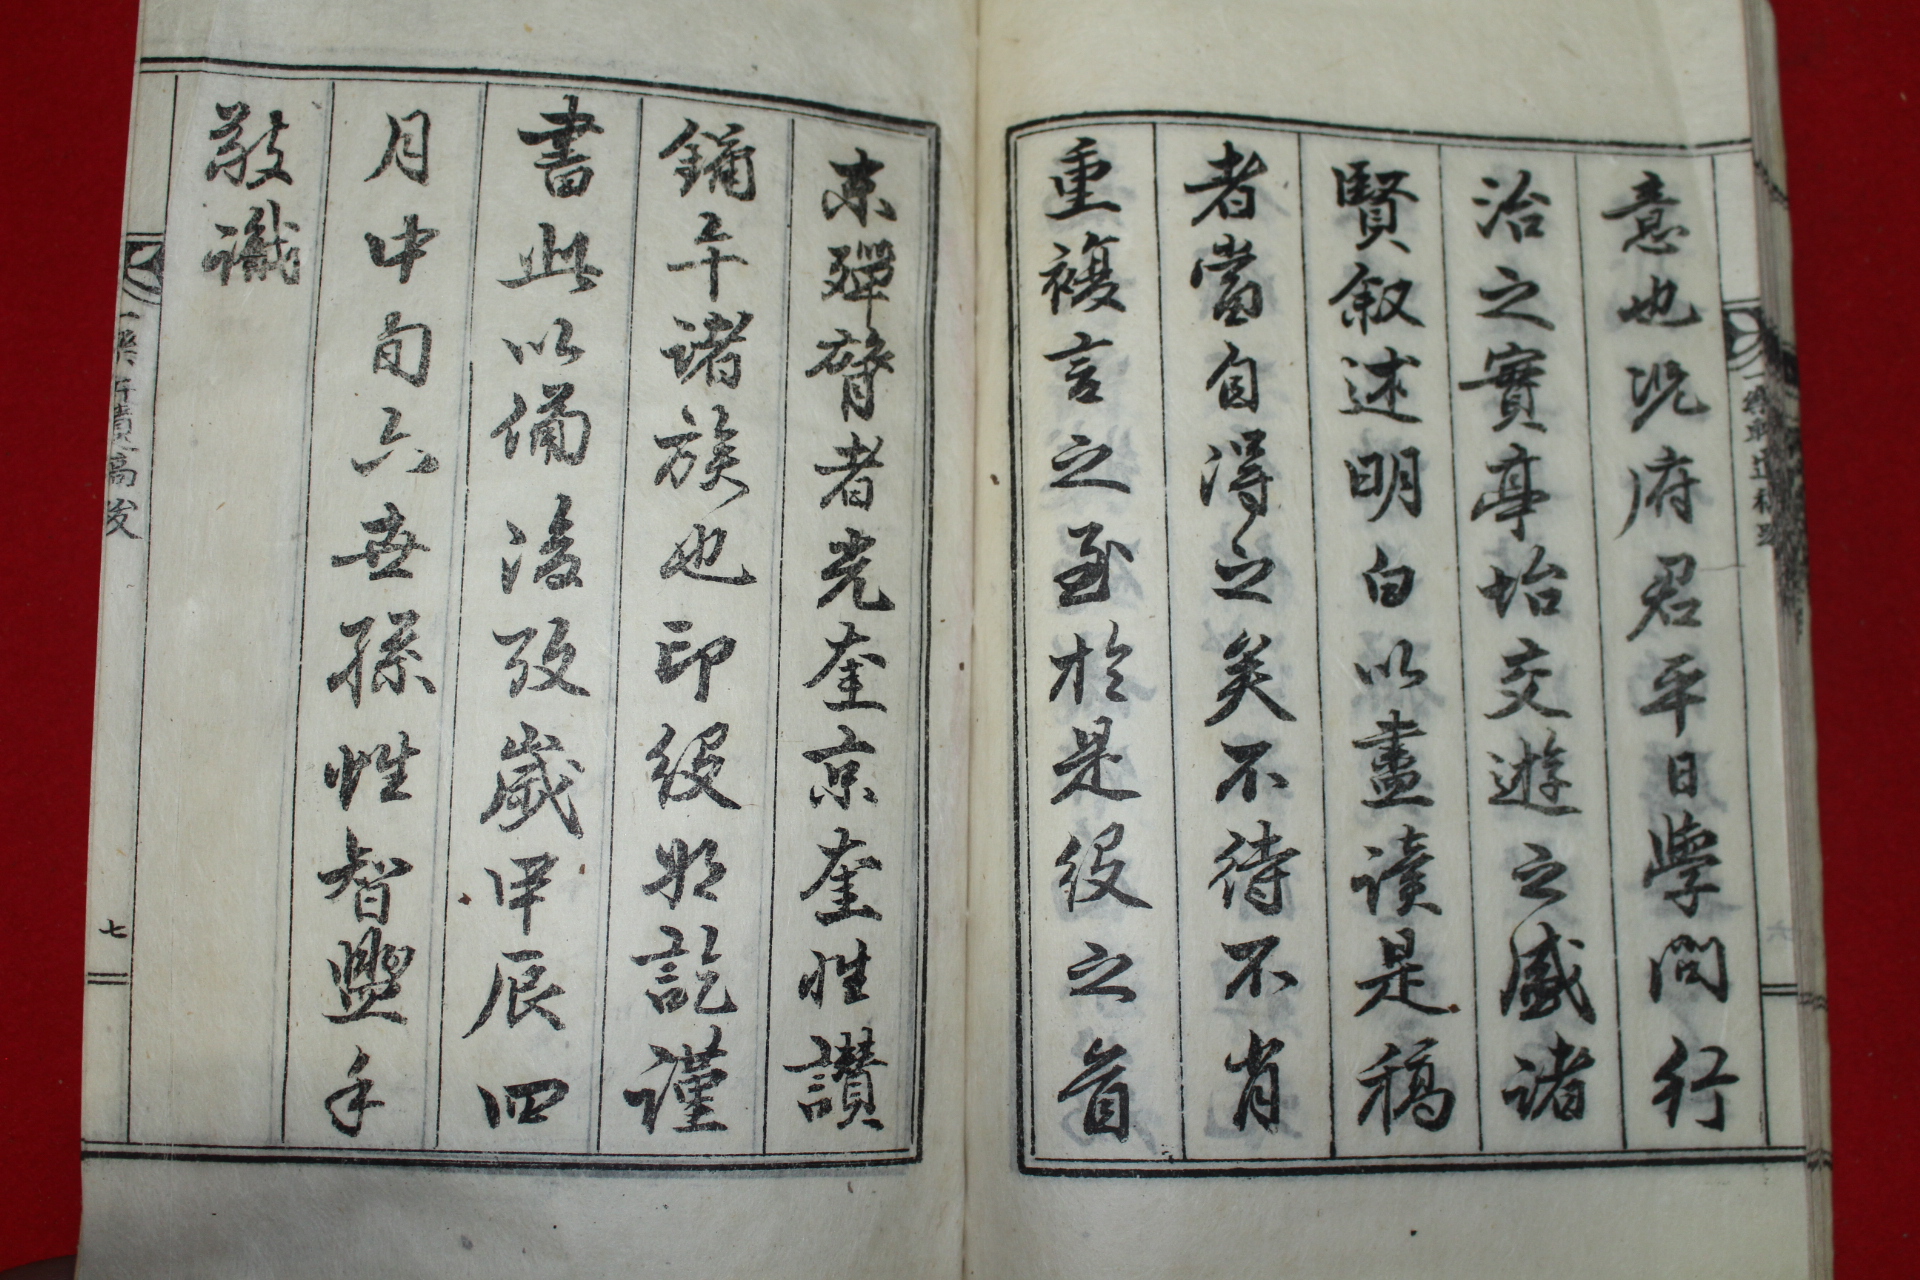 意也況府君平日學問行
治之實亭始交遊之盛諸
賢叙述明白以盡讀是稿
者當自得之矣不待不肖
重複言之至於是役之首
末殫膂者光奎京奎性讃
鏞午諸族也印役將訖謹
書此以備後攷歲甲辰四
月中旬六世孫性智盥手
敬識
七